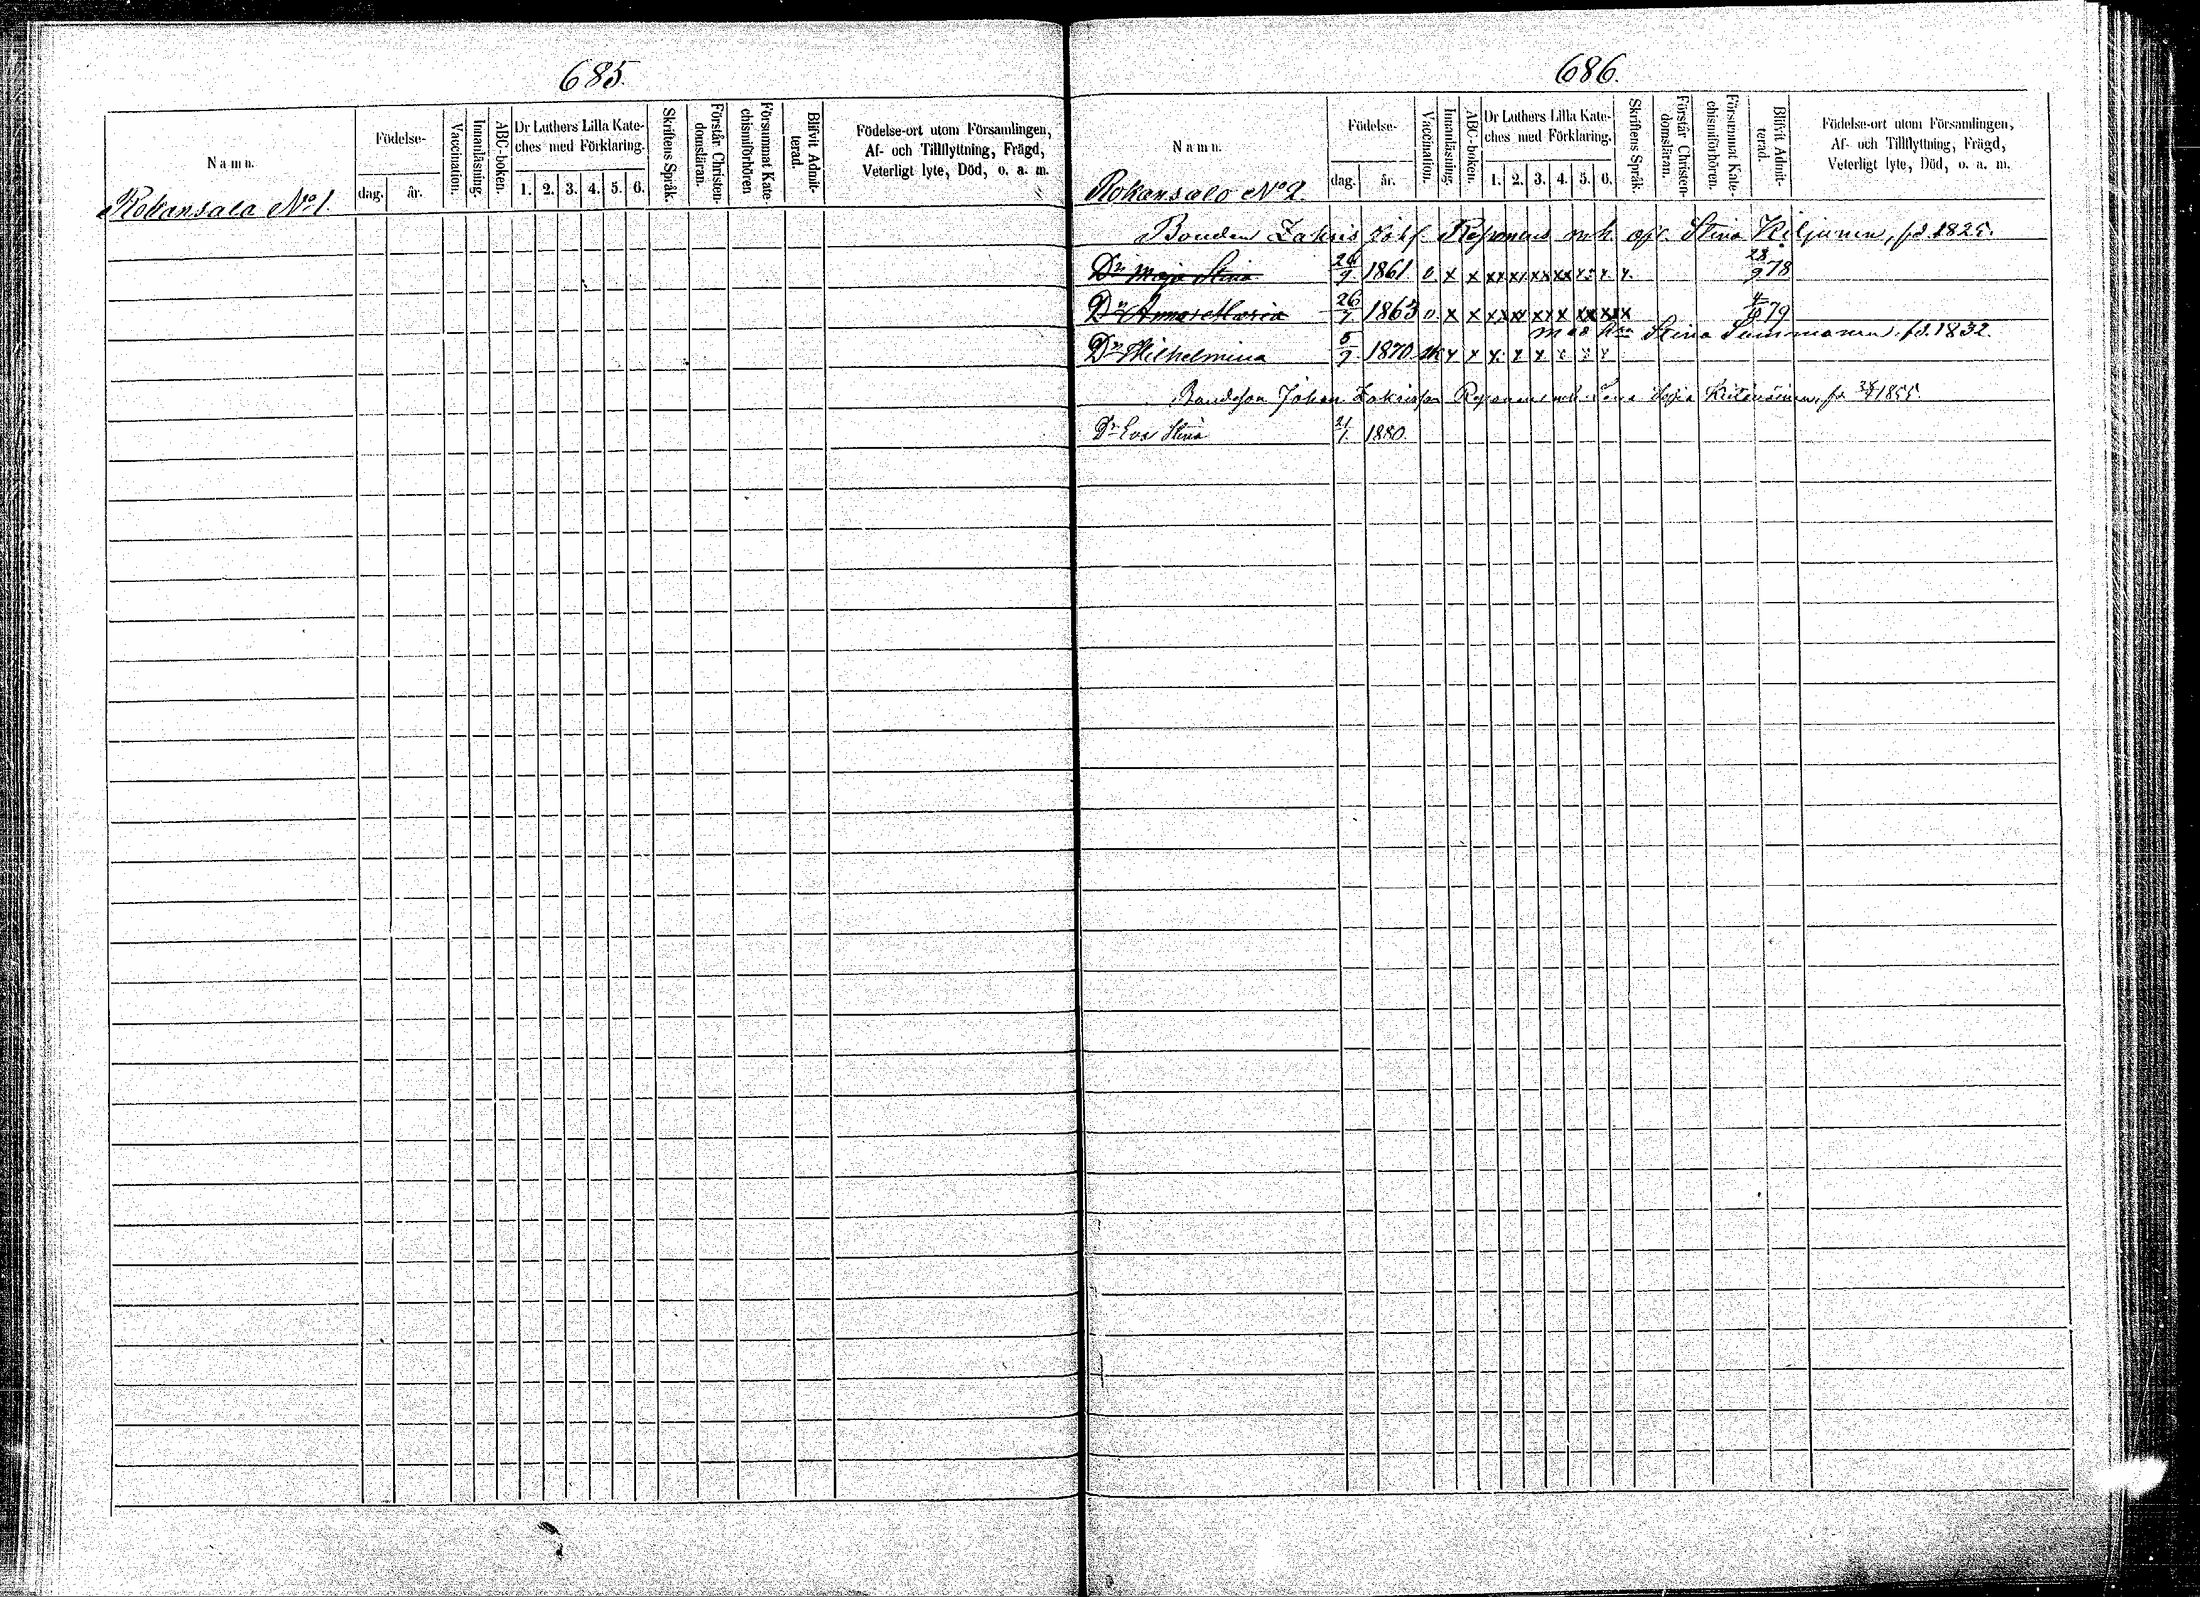 685.
Namn.
Födelse-
dag. år.
Vaccination.
Innanläsning.
ABC-boken.
Dr Luthers Lilla Kate-
ches med Förklaring.
1. 2. 3. 4. 5. 6.
Skriftens Språk.
Förstår Christen-
domsläran.
Försummat Kate-
chismiförhören.
Blifvit Admit-
terad.
Födelse-ort utom Församlingen,
Af- och Tillflyttning, Frägd,
Veterligt lyte, Död, o. a. m.
Rokansalo No 1.
686.
Namn.
Födelse-
dag. år.
Vaccination.
Innanläsning.
ABC-boken.
Dr Luthers Lilla Kate-
ches med Förklaring.
1. 2. 3. 4. 5. 6.
Skriftens Språk.
Förstår Christen-
domsläran.
Försummat Kate-
chismiförhören.
Blifvit Admit-
terad.
Födelse-ort utom Församlingen,
Af- och Tillflyttning, Frägd,
Veterligt lyte, Död, o. a. m.
Rokansalo No 2.
Bonden Zakris Reponens m.h. Stina Kiljunen, fd. 1825.
Dr Maja Stina 26/9 1861 v x x xx xx xx xx x x x. 28/9 78
Dr Anna Maria 26/7 1863 v x x xx xx xx x xx xxx 79
Stina Summanen. fd. 1832.
Dr Wilhelmina 5/7 1870 x x x x x x x x
Bondeson Johan Zakrisson Reponen 1855.
Dr Eva Stina 21/1 1880.